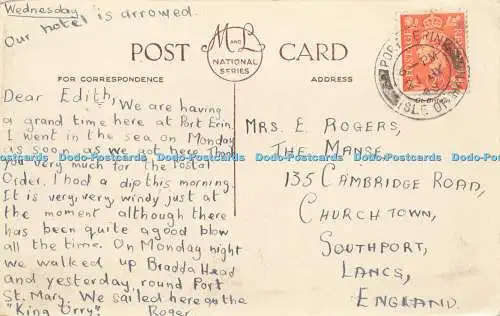 Wednesday
Our hotel is arrowed.
POST CARD
M and L
NATIONAL
SERIES
FOR CORRESPONDENCE
ADDRESS
PORT ERIN
ISLE OF MAN
Dear Edith,
We are having
a grand time here at Port Erin.
I went in the sea on Monday
as soon as we got here. Thank
you very much for the Postal
Order. I had a dip this morning.
It is very, very windy just at
the moment although there
has been quite a good blow
all the time. On Monday night
we walked up Bradda Head
and yesterday, round Port
St. Mary. We sailed here on the
"King Orry" Roger
MRS. E. ROGERS,
THE MANSE,
135 CAMBRIDGE ROAD,
CHURCHTOWN,
SOUTHPORT,
LANCS,
ENGLAND.
Postcards Postcards Postcards Postcards Postcards